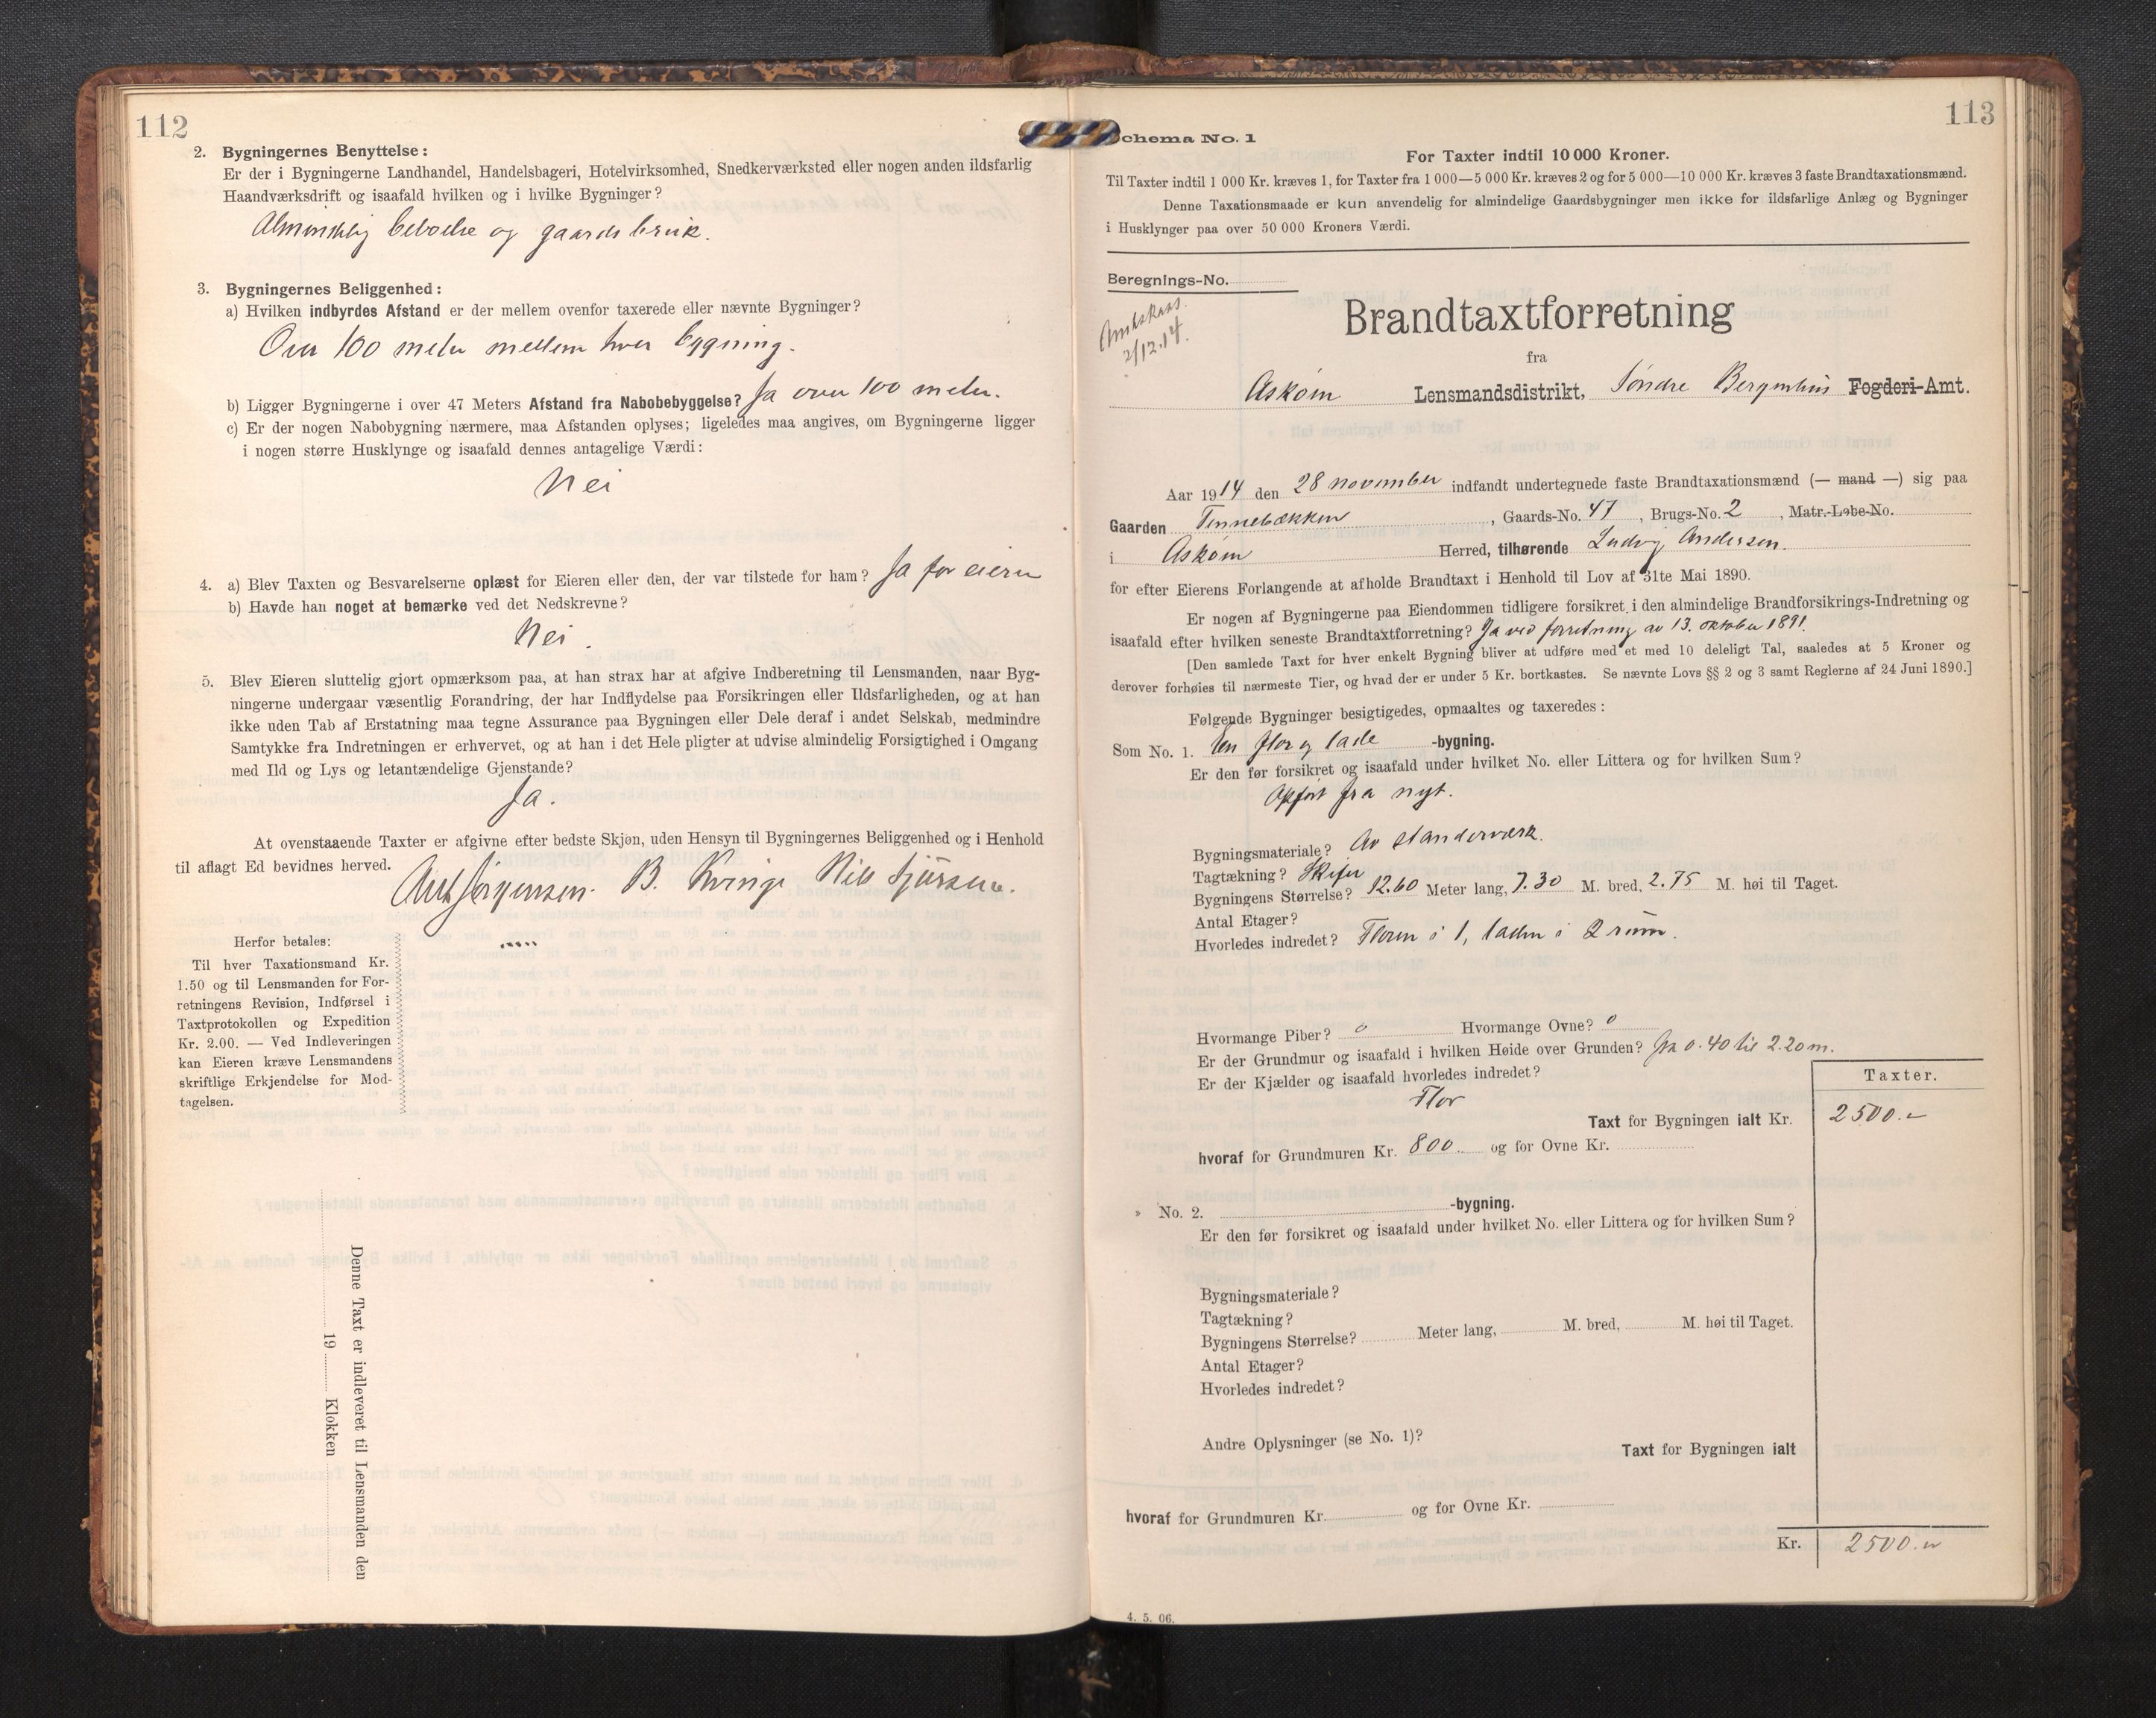 112
2. Bygningernes Benyttelse:
Er der i Bygningerne Landhandel, Handelsbageri, Hotelvirksomhed, Snedkerværksted eller nogen anden ildsfarlig
Haandværksdrift og isaafald hvilken og i hvilke Bygninger?
Almindelig beboelse og gaardsbruk.
3. Bygningernes Beliggenhed:
a) Hvilken indbyrdes Afstand er der mellem ovenfor taxerede eller nævnte Bygninger?
Over 100 meter mellem hver bygning.
b) Ligger Bygningerne i over 47 Meters Afstand fra Nabobebyggelse? Ja over 100 meter.
c) Er der nogen Nabobygning nærmere, maa Afstanden oplyses; ligeledes maa angives, om Bygningerne ligger
i nogen større Husklynge og isaafald dennes antagelige Værdi:
Nei
4. a) Blev Taxten og Besvarelserne oplæst for Eieren eller den, der var tilstede for ham? Ja for eieren
b) Havde han noget at bemærke ved det Nedskrevne?
Nei.
5. Blev Eieren sluttelig gjort opmærksom paa, at han strax har at afgive Indberetning til Lensmanden, naar Byg-
ningerne undergaar væsentlig Forandring, der har Indflydelse paa Forsikringen eller Ildsfarligheden, og at han
ikke uden Tab af Erstatning maa tegne Assurance paa Bygningen eller Dele deraf i andet Selskab, medmindre
Samtykke fra Indretningen er erhvervet, og at han i det Hele pligter at udvise almindelig Forsigtighed i Omgang
med Ild og Lys og letantændelige Gjenstande?
Ja.
At ovenstaaende Taxter er afgivne efter bedste Skjøn, uden Hensyn til Bygningernes Beliggenhed og i Henhold
til aflagt Ed bevidnes herved.
Jørgensen. B. Kvinge Nils
Herfor betales:
Til hver Taxationsmand Kr.
1.50 og til Lensmanden for For-
retningens Revision, Indførsel i
Taxtprotokollen og Expedition
Kr. 2.00. — Ved Indleveringen
kan Eieren kræve Lensmandens
skriftlige Erkjendelse for Mod-
tagelsen.
Denne Taxt er indleveret til Lensmanden den
19 Klokken
113
chema No. 1
For Taxter indtil 10 000 Kroner.
Til Taxter indtil 1 000 Kr. kræves 1, for Taxter fra 1 000—5 000 Kr. kræves 2 og for 5 000—10 000 Kr. kræves 3 faste Brandtaxationsmænd.
Denne Taxationsmaade er kun anvendelig for almindelige Gaardsbygninger men ikke for ildsfarlige Anlæg og Bygninger
i Husklynger paa over 50 000 Kroners Værdi.
Beregnings-No.
2/12.14.
Brandtaxtforretning
fra
Askøm Lensmandsdistrikt, Søndre Bergenhus Fogderi-Amt.
Aar 1914 den 28 november indfandt undertegnede faste Brandtaxationsmænd (— mand —) sig paa
Gaarden Tennebækken, Gaards-No. 47, Brugs-No. 2, Matr.-Løbe-No.
i Askøm Herred, tilhørende Ludvig Andersen.
for efter Eierens Forlangende at afholde Brandtaxt i Henhold til Lov af 31te Mai 1890.
Er nogen af Bygningerne paa Eiendommen tidligere forsikret i den almindelige Brandforsikrings-Indretning og
isaafald efter hvilken seneste Brandtaxtforretning? Ja ved forretning av 13. oktober 1891.
[Den samlede Taxt for hver enkelt Bygning bliver at udføre med et med 10 deleligt Tal, saaledes at 5 Kroner og
derover forhøies til nærmeste Tier, og hvad der er under 5 Kr. bortkastes. Se nævnte Lovs §§ 2 og 3 samt Reglerne af 24 Juni 1890.]
Følgende Bygninger besigtigedes, opmaaltes og taxeredes:
Som No. 1. En flor og lade -bygning.
Er den før forsikret og isaafald under hvilket No. eller Littera og for hvilken Sum?
Opført fra nyt.
Bygningsmateriale? Av standerværk.
Tagtækning? Skifer
Bygningens Størrelse? 12.60 Meter lang, 7.30 M. bred, 2.75 M. høi til Taget.
Antal Etager?
Hvorledes indredet? Floren i 1, laden i 2 rum.
Hvormange Piber? 0 Hvormange Ovne? 0
Er der Grundmur og isaafald i hvilken Høide over Grunden? fra 0.40 til 2.20 m.
Er der Kjælder og isaafald hvorledes indredet?
Flor
Taxter.
Taxt for Bygningen ialt Kr. 2500.-
hvoraf for Grundmuren Kr. 800.. og for Ovne Kr.
» No. 2. -bygning.
Er den før forsikret og isaafald under hvilket No. eller Littera og for hvilken Sum?
Bygningsmateriale?
Tagtækning?
Bygningens Størrelse? Meter lang, M. bred, M. høi til Taget.
Antal Etager?
Hvorledes indredet?
Andre Oplysninger (se No. 1)?
Taxt for Bygningen ialt
hvoraf for Grundmuren Kr. og for Ovne Kr.
Kr. 2500.-
4. 5. 06.